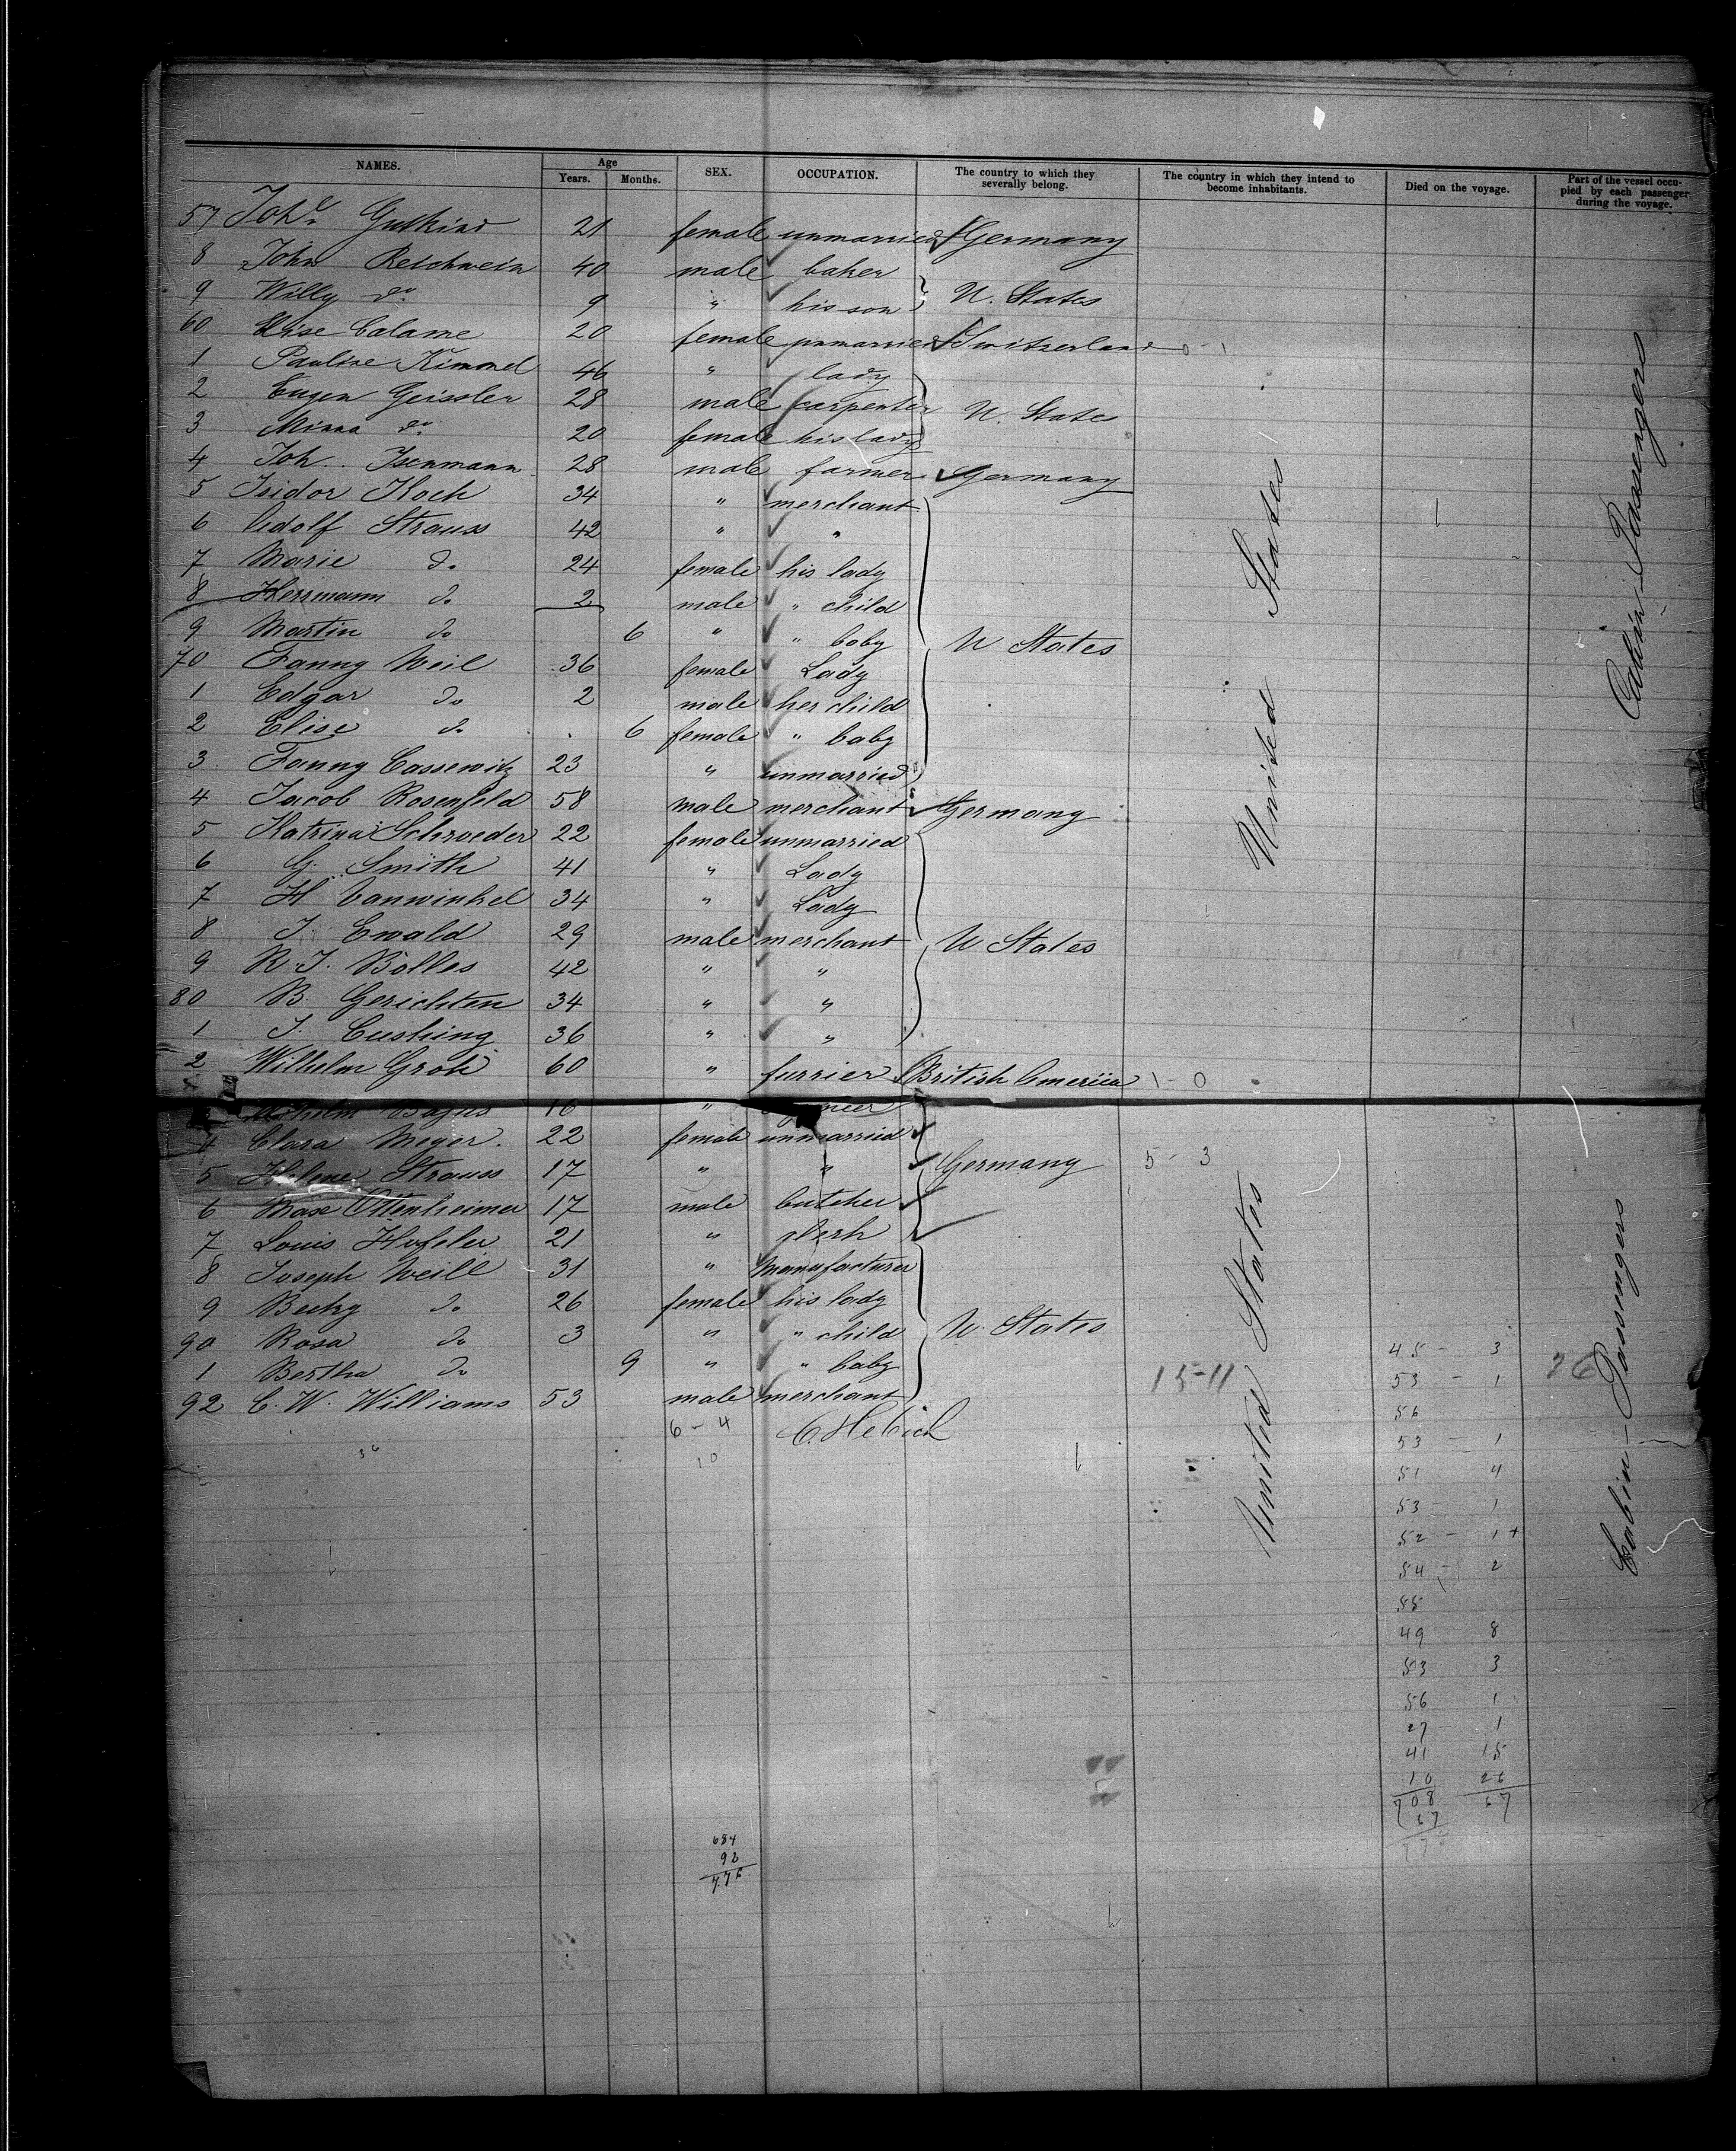 NAMES. Age SEX. OCCUPATION. The country to which they severally belong. The country in which they intend to become inhabitants. Died on the voyage. Part of the vessel occupied by each passenger during the voyage.
Years. Months.
57 Joh. Gutkind 21 female unmarried Germany
8 John Reichwein 40 male baker
9 Willy do 9 " his son U. States
60 Elise Calame 20 female unmarried Switzerland 0-1
1 Pauline Kimmel 46 " lady
2 Eugen Geissler 28 male carpenter U. States
3 Minna do 20 female his lady
4 Joh. Isenmann 28 male farmer Germany
5 Isidor Koch 34 " merchant
6 Adolf Strauss 42 " "
7 Marie do 24 female his lady
8 Herrmann do 2 male " child
9 Martin do 6 " " baby U States
70 Fanny Weil 36 female Lady
1 Edgar do 2 male her child
2 Elise do 6 female " baby
3 Fanny Cassewitz 23 " unmarried
4 Jacob Rosenfeld 58 male merchant Germany
5 Katrina Schroeder 22 female unmarried
6 G. Smith 41 " Lady
7 H Vanwinkel 34 " Lady
8 J. Ewald 29 male merchant U States
9 R. J. Bolles 42 " "
80 B. Gerichten 34 " "
1 J. Cushing 36 " "
2 Wilhelm Groh 60 " furrier British America 1-0
16 "
4 Clara Meyer 22 female unmarried
5 Helene Strauss 17 " " Germany 5-3
6 Max Ottenheimer 17 male butcher
7 Louis Hofeler 21 " clerk
8 Joseph Weill 31 " Manufacturer
9 Becky do 26 female his lady
90 Rosa do 3 " " child U. States
1 Bertha do 9 " " baby 15-11
92 C. W. Williams 53 male merchant
6-4
10
United States
Cabin Passengers
United States
Cabin-Passengers
45 - 3
53 - 1
56 -
53 - 1
51 4
53 - 1
52 - 1+
54 - 2
55
49 8
53 3
56 1
27 - 1
41 15
10 26
708 67
67
26
684
92
776